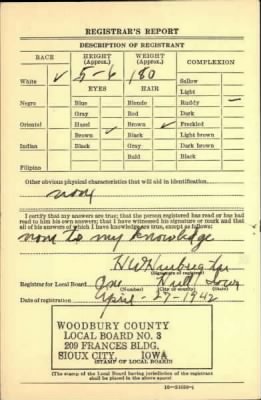 REGISTRAR'S REPORT
DESCRIPTION OF REGISTRANT
RACE HEIGHT (Approx.) WEIGHT (Approx.) COMPLEXION
White ✓ 5-6 180 Sallow
EYES HAIR Light
Negro Blue Blonde Ruddy –
Gray Red Dark
Oriental Hazel Brown ✓ Freckled
Brown ✓ Black Light brown
Indian Black Gray Dark brown
Bald Black
Filipino
Other obvious physical characteristics that will aid in identification
none
I certify that my answers are true; that the person registered has read or has had
read to him his own answers; that I have witnessed his signature or mark and that
all of his answers of which I have knowledge are true, except as follows:
none to my knowledge
(Signature of registrar)
Registrar for Local Board One Hull Iowa
(Number) (City or county) (State)
Date of registration April - 27 - 1942
WOODBURY COUNTY
LOCAL BOARD NO. 3
209 FRANCES BLDG.
SIOUX CITY, IOWA
(STAMP OF LOCAL BOARD)
(The stamp of the Local Board having jurisdiction of the registrant
shall be placed in the above space)